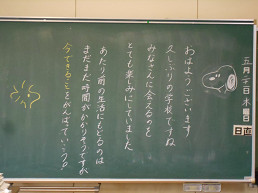 五月二十日木曜日
日直
おはようございます。
久しぶりの学校ですね
みなさんに会えるのを
とても楽しみにしていました
あたり前の生活にもどるのは
まだまだ時間がかかりそうですが
今できることをがんばっていこう